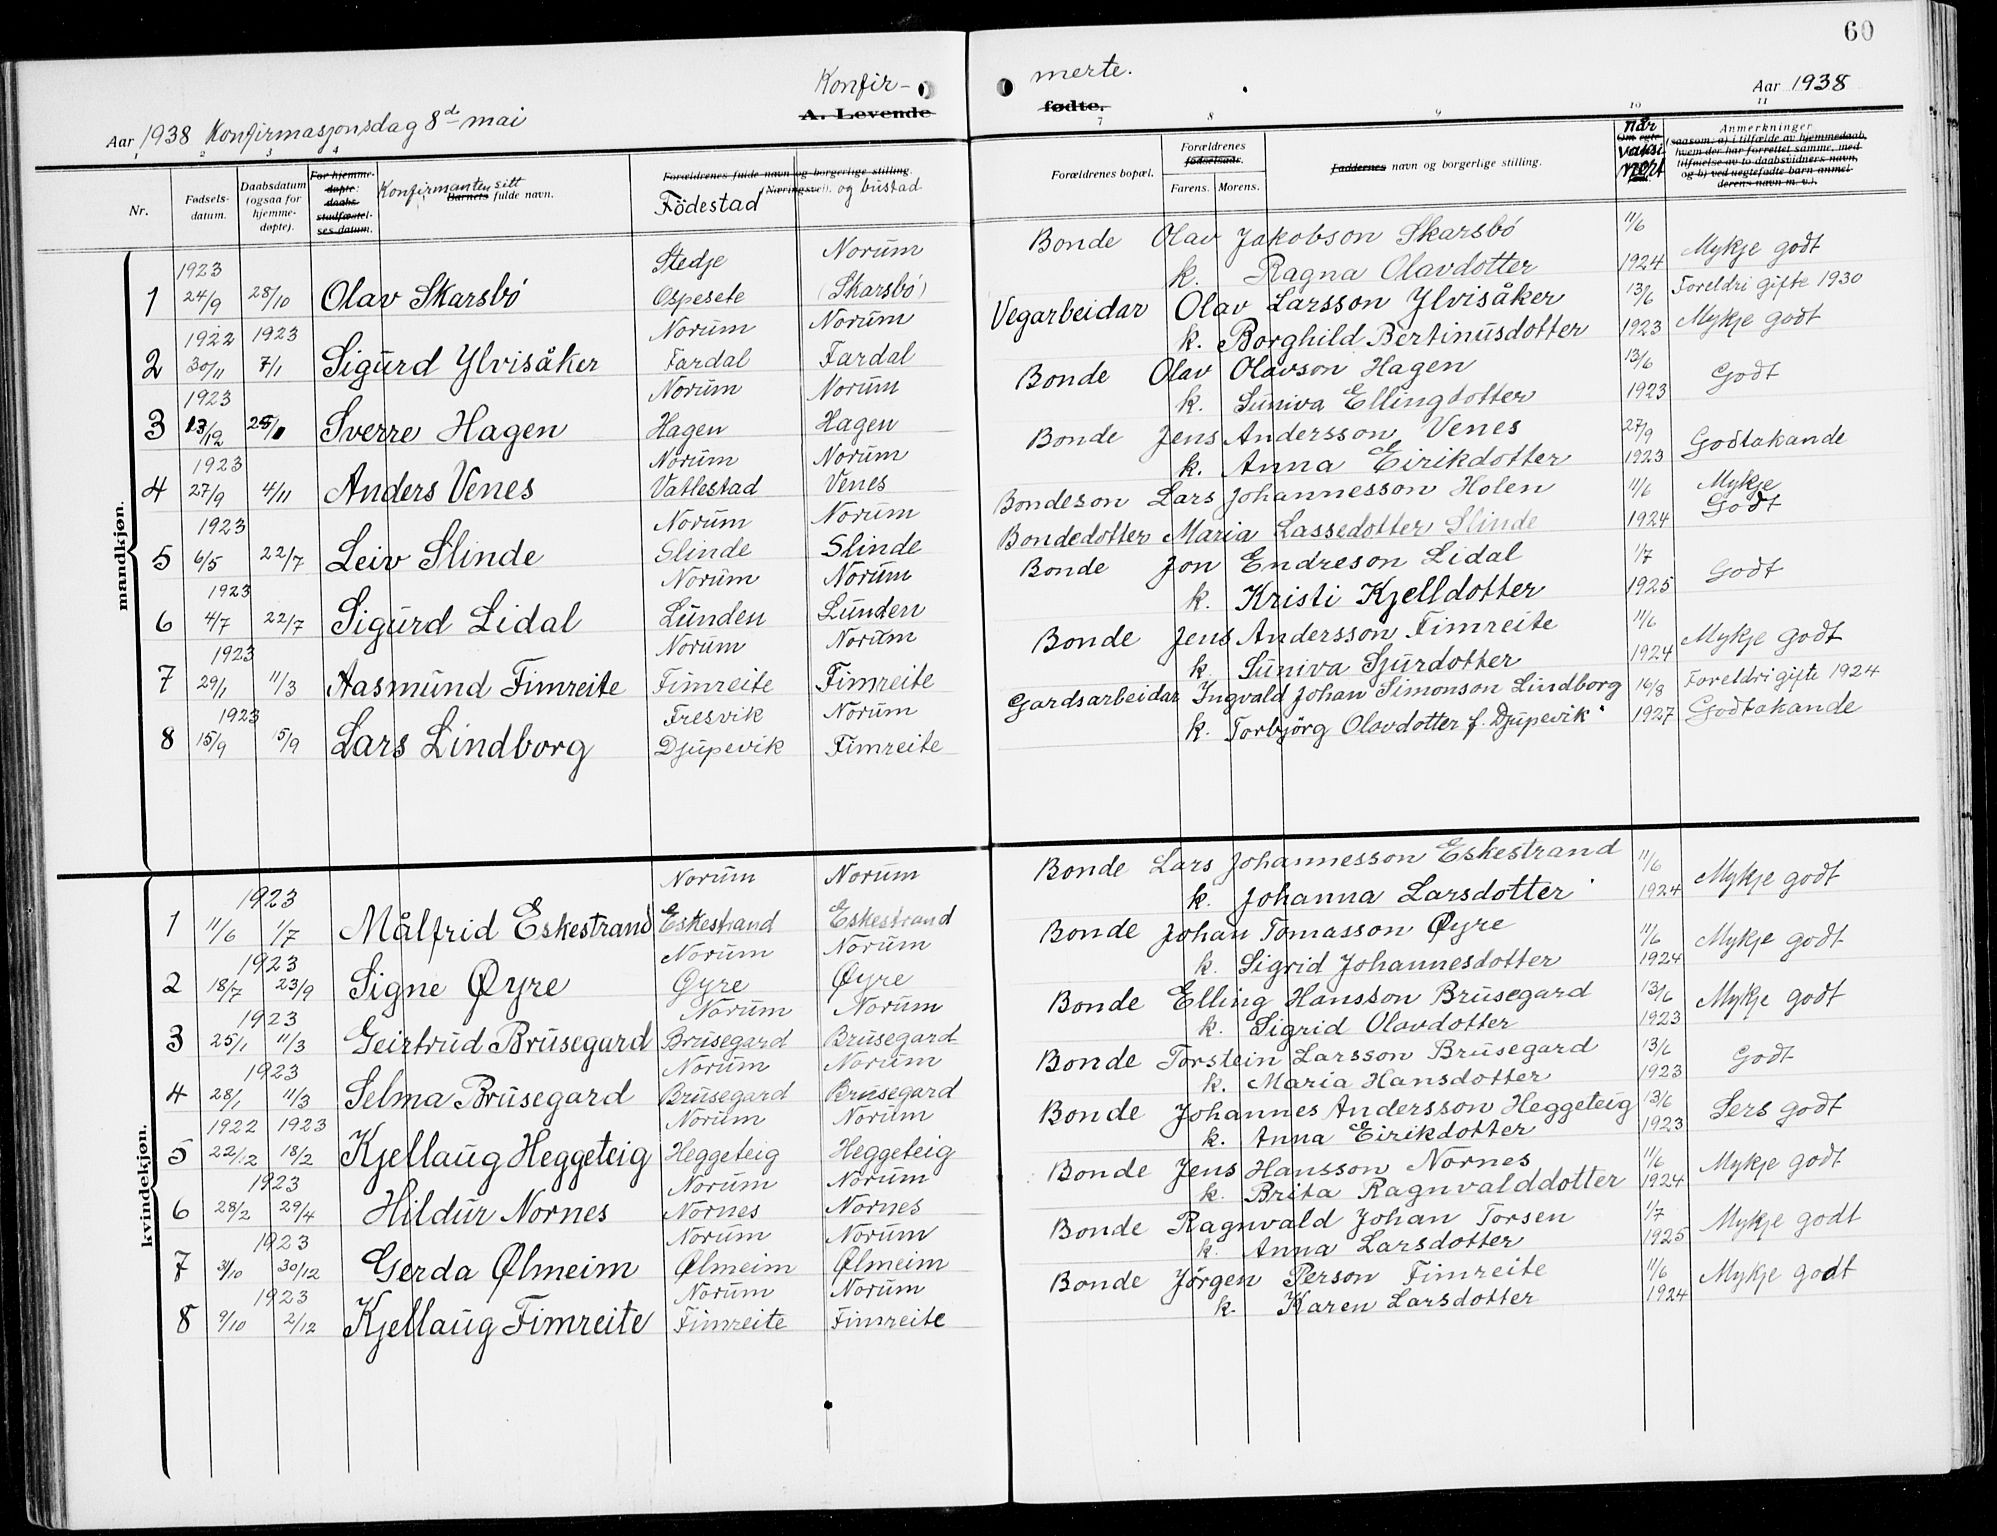 60
Konfir- merte.
A. Levende fødte.
Aar 1938 Konfirmasjonsdag 8de mai
Aar 1938
1 2 3 4 7 8 9 10 11
Nr.
Fødsels-
datum.
Daabsdatum
(ogsaa for
hjemme-
døpte).
For hjemme-
døpte:
daabs-
stadfæstel-
ses datum.
Konfirmanten sitt
Barnets fulde navn.
Forældrenes fulde navn og borgerlige stilling.
Födestad
Næringsvei. og bustad
Forældrenes bopæl.
Forældrenes
fødselsaar.
Farens. Morens.
Faddernes navn og borgerlige stilling.
når
Om egte
vaksi-
nert
Anmerkninger
(saasom: a) i tilfælde av hjemmedaab,
hvem der har forrettet samme, med
tilføielse av to daabsvidners navn,
og b) ved uegtefødte barn anmel-
derens navn m. v.).
mandkjøn.
1923 Stedje Norum Bonde Olav Jakobson Skarsbö 11/6 Mykje godt
1 24/9 28/10 Olav Skarsbö Ospesete (Skarsbö) k. Ragna Olavdotter 1924
1922 1923 Norum Norum Vegarbeidar Olav Larsson Ylvisåker 13/6 Foreldri gifte 1930
2 30/11 7/1 Sigurd Ylvisåker Fardal Fardal k. Borghild Bertinusdotter 1923 Mykje godt
1923 Norum Norum Bonde Olav Olavson Hagen 13/6 Godt
3 Sverre Hagen Hagen Hagen k. Suniva Ellingdotter 1923
1923 Norum Norum Bonde Jens Andersson Venes 27/9 Godtakande
4 27/9 4/11 Anders Venes Vatlestad Venes k. Anna Eirikdotter 1923
1923 Norum Norum Bondeson Lars Johannesson Holen 11/6 Mykje
5 6/5 22/7 Leiv Slinde Slinde Slinde Bondedotter Maria Lassedotter Slinde 1924 Godt
1923 Norum Norum Bonde Jon Endreson Lidal 1/7 Godt
6 4/7 22/7 Sigurd Lidal Lunden Lunden k. Kristi Kjelldotter 1925
1923 Norum Norum Bonde Jens Andersson Fimreite 11/6 Mykje godt
7 29/1 11/3 Aasmund Fimreite Fimreite Fimreite k. Suniva Sjurdotter 1924
1923 Fresvik Norum Gardsarbeidar Ingvald Johan Simonson Lindborg 16/8 Foreldri gifte 1924
8 15/9 5/9 Lars Lindborg Djupevik Fimreite k. Torbjörg Olavdotter f. Djupevik 1927 Godtakande
kvindekjøn.
1923 Norum Norum Bonde Lars Johannesson Eskestrand 11/6 Mykje godt
1 11/6 1/7 Målfrid Eskestrand Eskestrand Eskestrand k. Johanna Larsdotter 1924
1923 Norum Norum Bonde Johan Tomasson Øyre 11/6 Mykje godt
2 18/7 23/9 Signe Øyre Øyre Øyre k. Sigrid Johannesdotter 1924
1923 Norum Norum Bonde Elling Hansson Brusegard 13/6 Mykje godt
3 25/1 11/3 Geirtrud Brusegard Brusegard Brusegard k. Sigrid Olavdotter 1923
1923 Norum Norum Bonde Torstein Larsson Brusegard 13/6 Godt
4 28/1 11/3 Selma Brusegard Brusegard Brusegard k. Maria Hansdotter 1923
1922 1923 Norum Norum Bonde Johannes Andersson Heggeteig 13/6 Sers godt
5 22/12 18/2 Kjellaug Heggeteig Heggeteig Heggeteig k. Anna Eirikdotter 1923
1923 Norum Norum Bonde Jens Hansson Nornes 11/6 Mykje godt
6 28/2 29/4 Hildur Nornes Nornes Nornes k. Brita Ragnvalddotter 1924
1923 Norum Norum Bonde Ragnvald Johan Torsen 1/7 Mykje godt
7 31/10 30/12 Gerda Ølmeim Ølmeim Ølmeim k. Anna Larsdotter 1925
1923 Norum Norum Bonde Jörgen Person Fimreite 11/6 Mykje godt
8 9/10 2/12 Kjellaug Fimreite Fimreite Fimreite k. Karen Larsdotter 1924